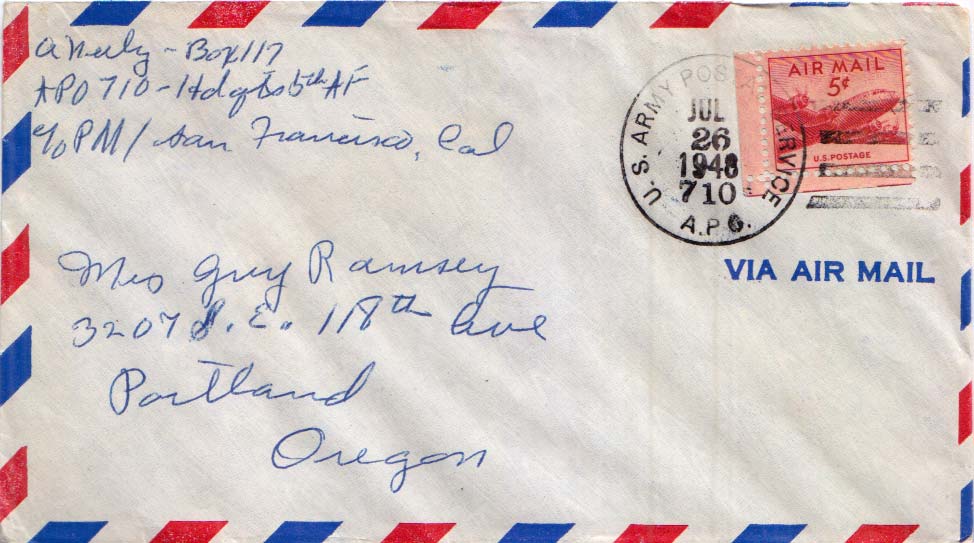 A Neely - Box 117
APO 710 - Hdqtrs 5th AF
c/o PM / San Francisco, Cal
U.S. ARMY POSTAL SERVICE
JUL
26
1948
710
A.P.O.
AIR MAIL
5¢
U.S. POSTAGE
VIA AIR MAIL
Mrs Guy Ramsey
3207 S.E. 118th Ave
Portland
Oregon